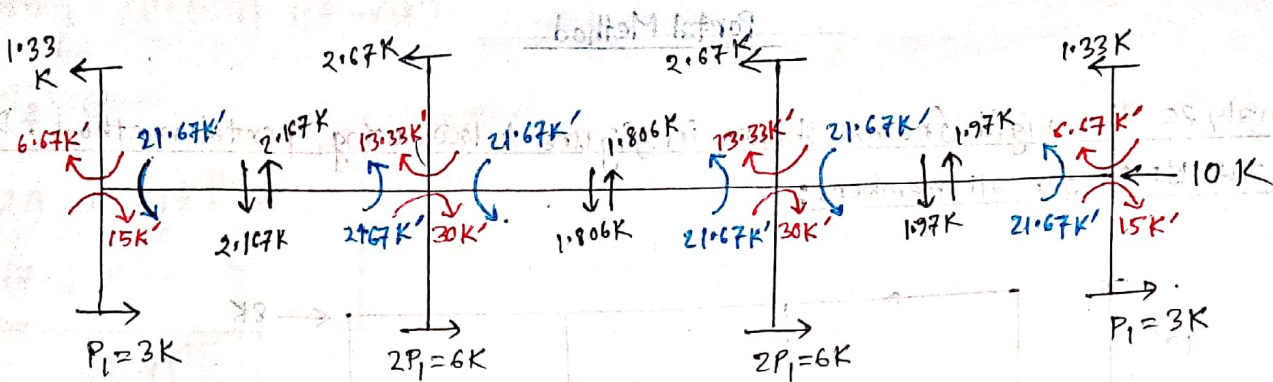 1.33
K
2.67K
2.67K
1.33K
6.67K' 21.67K' 2.167K 13.33K' 21.67K' 1.806K 13.33K' 21.67K' 1.97K 6.67K'
10K
15K' 2.167K 21.67K' 30K' 1.806K 21.67K' 30K' 1.97K 21.67K' 15K'
P₁ = 3K 2P₁=6K 2P₁=6K P₁ = 3K